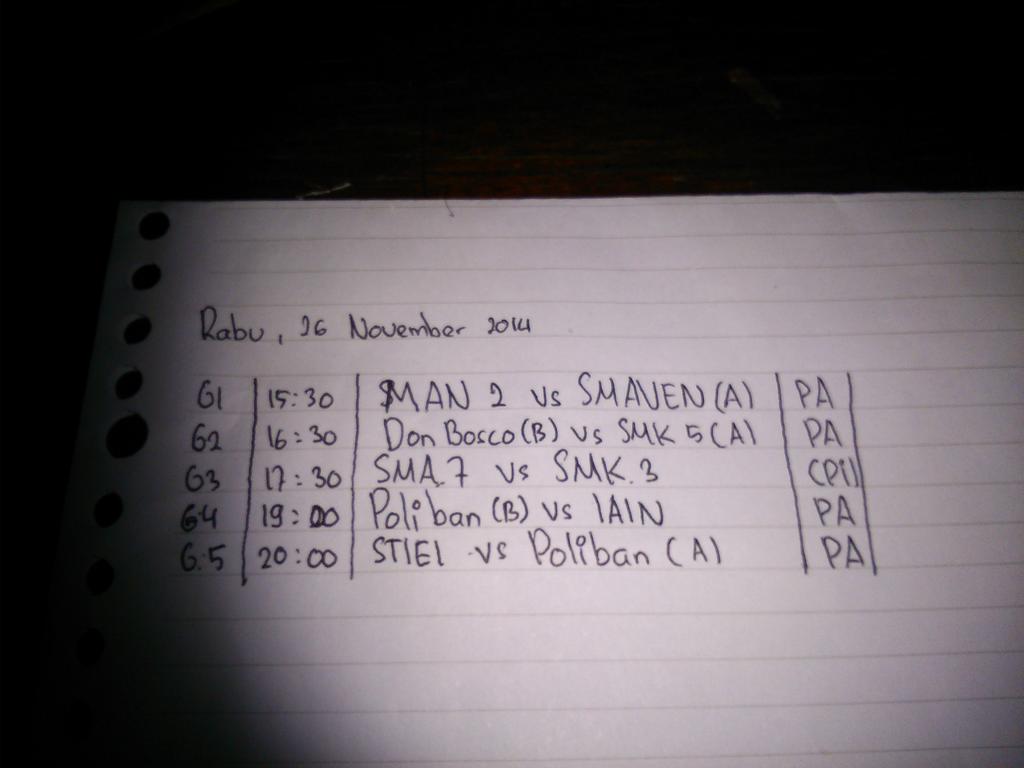 Rabu, 26 November 2014
G1 15:30 MAN 2 vs SMAVEN (A) PA
G2 16:30 Don Bosco (B) vs SMK 5 (A) PA
G3 17:30 SMA.7 vs SMK.3 (Pi)
G4 19:00 Poliban (B) vs IAIN PA
G.5 20:00 STIEI vs Poliban (A) PA